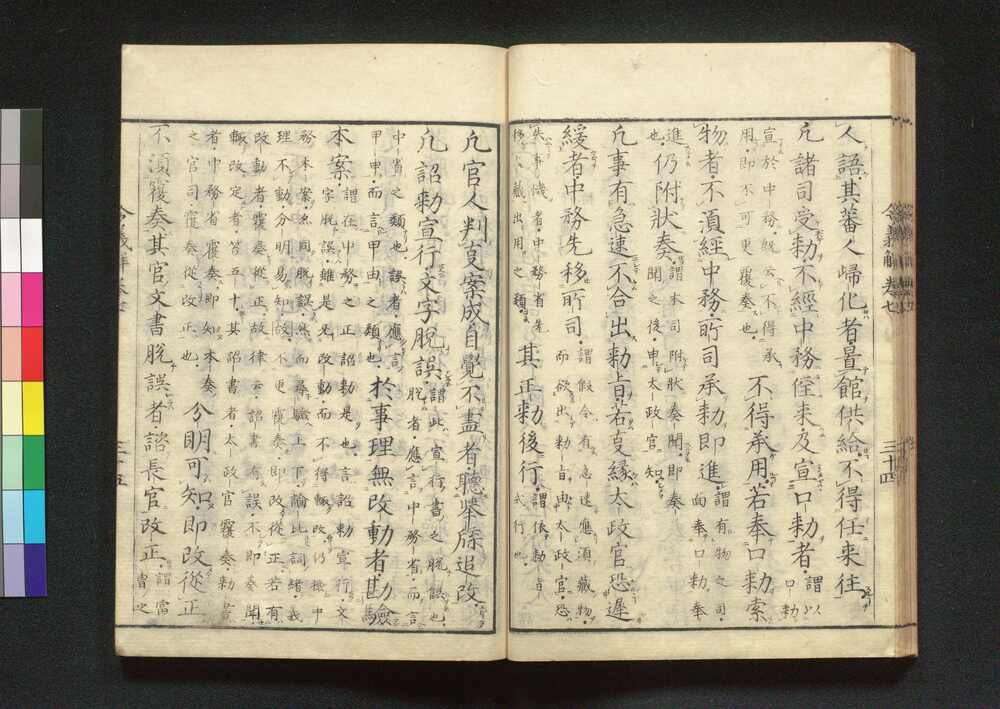 人語其蕃人帰化者置館供給不得任来往
凡諸司受勅不経中務侄来及宣口勅者謂以口勅
宣於中務故云不得承用即不可更覆奏也不得承用若奉口勅索
物者不須経中務所司承勅即進謂有物之司面奉口勅奉
進也仍附状奏謂本司附状奏聞即奏聞之後申太政官知
凡事有急速不合出勅旨若事縁太政官恐遅
緩者中務先移所司謂假令有急速應須蔵物而欲出勅旨由太政官恐
失事機者中務省先移大蔵出用之類其正勅後行謂依勅旨式行也
令義解巻七
三十四
凡官人判事案成自覺不盡者聴挙牒追改
凡詔勅宣行文字脱誤謂此宣行書之脱誤也脱者應言中務省而言
中省之類也誤者應言甲申而言甲由之類也於事理無改動者勘驗
本案謂在中務之正詔勅是也言詔勅宣行文字脱誤雖是无改動而不得輙改仍検中
務本案亦同脱誤然而尋驗上下論比詞緒義
理不動分明易知故不更覆奏即改従正若有
改動者覆奏従正故律云詔書有誤不即奏聞
輙改定者笞五十其詔書者太政官覆奏勅旨
者中務省覆奏即知本奏
之官司覆奏従改正也分明可知即改従正
不須覆奏其官文書脱誤者諮長官改正謂當
曹之
令義解巻七
三十五